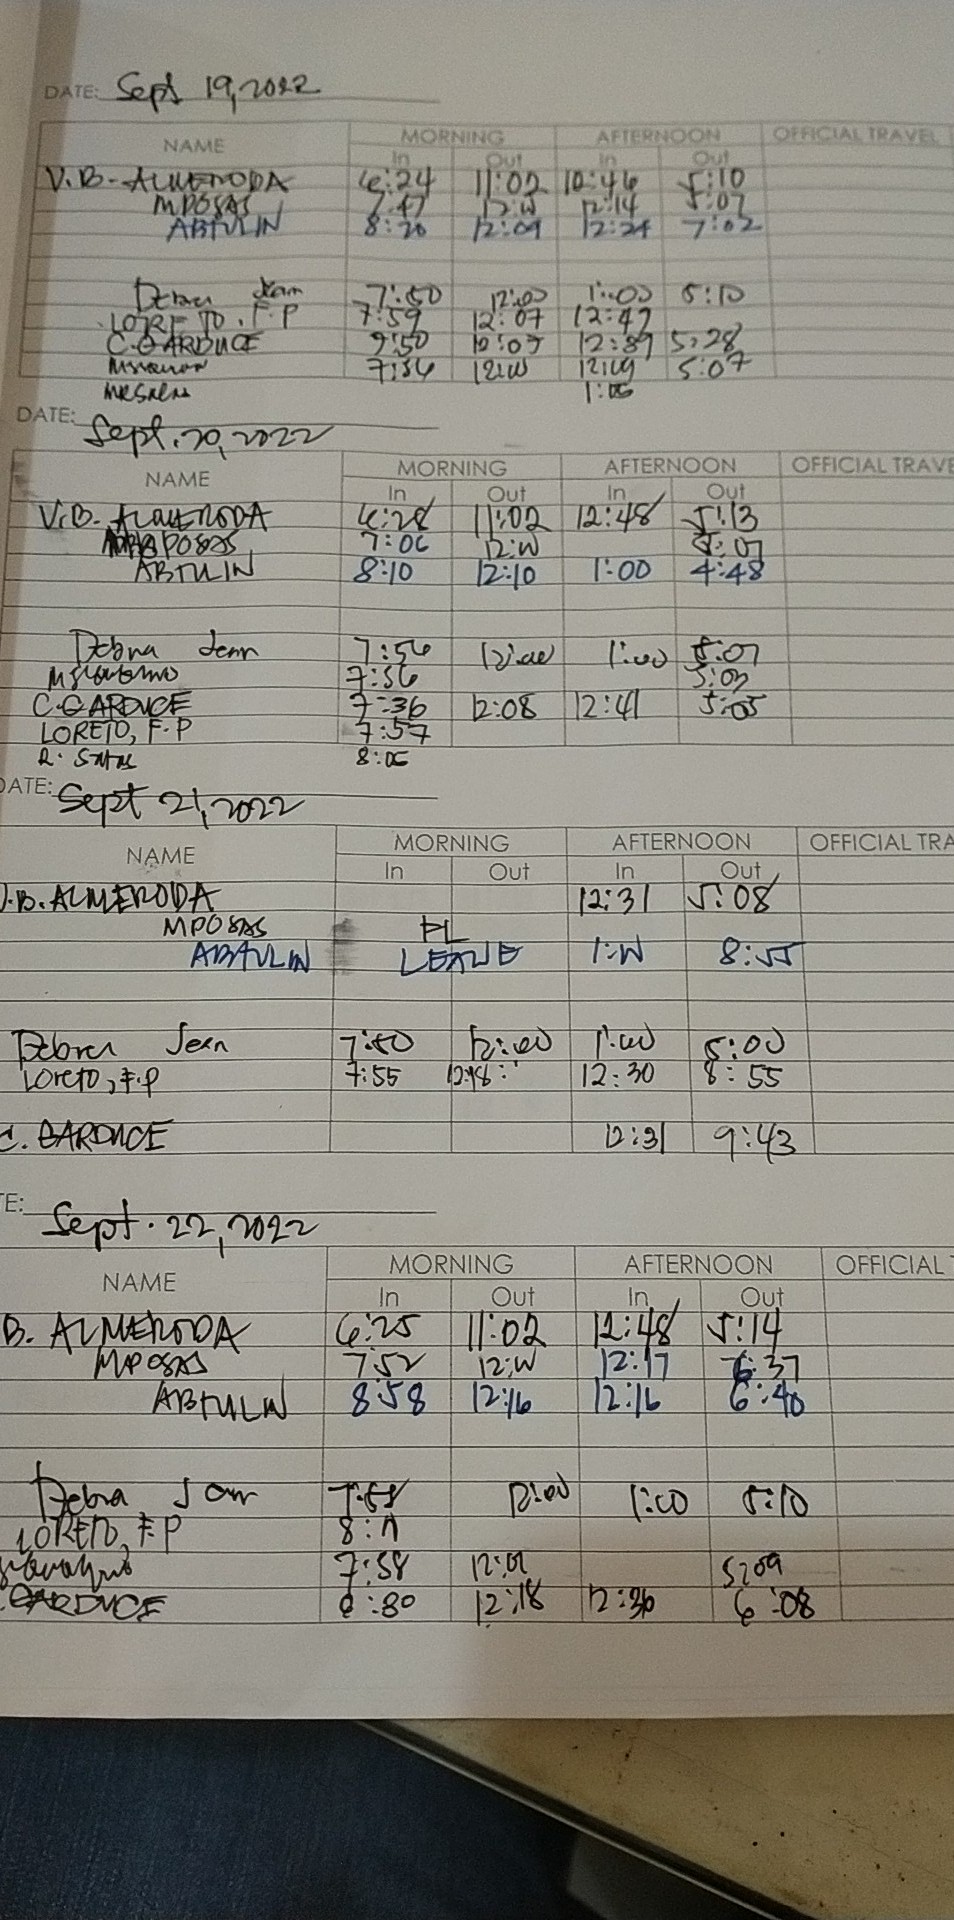 DATE: Sept 19, 2022
NAME MORNING AFTERNOON OFFICIAL TRAVEL
In Out In Out
V.B. ALMERODA 6:24 11:02 10:46 5:10
MPOSAS 7:47 12:00 12:14 5:07
ABTULIN 8:20 12:09 12:24 7:02
Debra Jean 7:50 12:00 1:00 5:10
LORETO, F.P 7:59 12:07 12:47
C. GARDUCE 12:39 5:28
12:00 12:09 5:07
DATE: Sept. 20, 2022
NAME MORNING AFTERNOON OFFICIAL TRAVE
In Out In Out
V.B. ALMERODA 6:28 11:02 12:48 5:13
POSAS 7:06 12:00 5:07
ABTULIN 8:10 12:10 1:00 4:48
Debra Jean 7:56 12:00 1:00 5:07
7:56 5:03
C. GARDUCE 7:36 12:08 12:41 5:05
LORETO, F.P 7:57
R. 8:05
DATE: Sept 21, 2022
NAME MORNING AFTERNOON OFFICIAL TRA
In Out In Out
.B. ALMERODA 12:31 5:08
MPOSAS PL
ABTULIN LEAVE 1:00 8:55
Debra Jean 7:50 12:00 1:00 5:00
Loreto, F.P 7:55 12:18 12:30 8:55
C. GARDUCE 12:31 9:43
TE: Sept. 22, 2022
NAME MORNING AFTERNOON OFFICIAL
In Out In Out
B. ALMERODA 6:25 11:02 12:48 5:14
MPOSAS 7:52 12:00 12:17 6:37
ABTULIN 8:58 12:16 12:16 6:40
Debra Jean 7:58 12:00 1:00 5:10
LORETO, F.P 8:11
7:58 12:02 5:09
GARDUCE 12:18 12:36 6:08